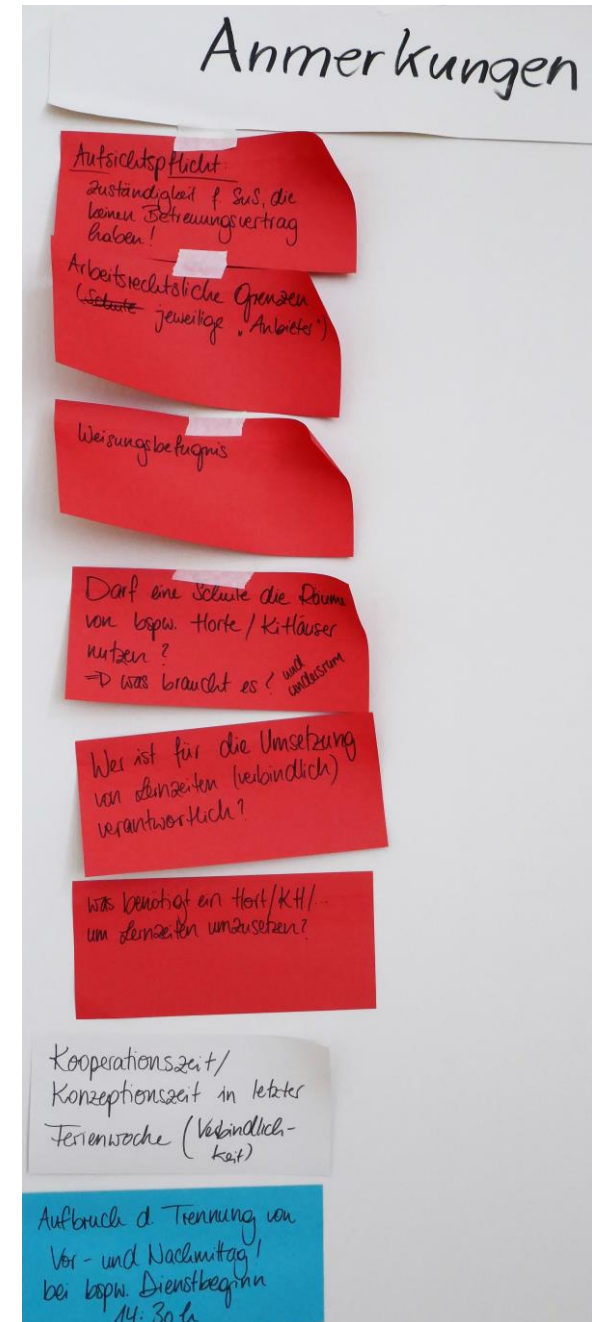 Anmerkungen
Aufsichtspflicht:
Zuständigkeit f. SuS, die
keinen Betreuungsvertrag
haben!
Arbeitsrechtsliche Grenzen
(Schule jeweilige „Anbieter")
Weisungsbefugnis
Darf eine Schule die Räume
von bspw. Horte / KitHäuser
nutzen?
=> was braucht es? und
andersrum
Wer ist für die Umsetzung
von Lernzeiten (verbindlich)
verantwortlich?
was benötigt ein Hort/KH/...
um Lernzeiten umzusetzen?
Kooperationszeit/
Konzeptionszeit in letzter
Ferienwoche (Verbindlich-
keit)
Aufbruch d. Trennung von
Vor- und Nachmittag!
bei bspw. Dienstbeginn
14:30 h